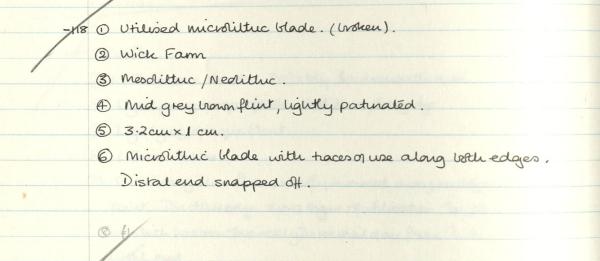 -118 ① Utilised microlithic blade. (broken).
② Wick Farm
③ Mesolithic / Neolithic.
④ Mid grey brown flint, lightly patinated.
⑤ 3.2cm x 1 cm.
⑥ Microlithic blade with traces of use along both edges.
Distal end snapped off.
⑧ fl